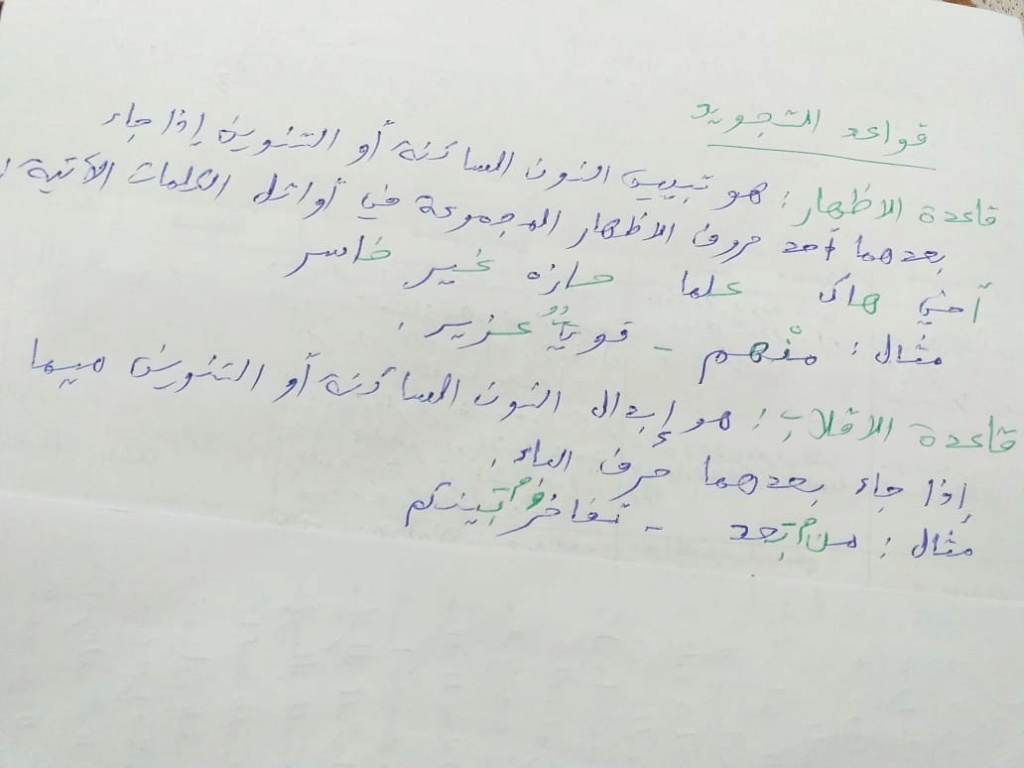 قواعد التجويد
قاعدة الاظهار : هو تبيين النون الساكنة أو التنوين إذا جاء
بعدهما أحد حروف الاظهار المجموعة في أوائل الكلمات الآتية :
أخي هاك علما حازه غير خاسر
مثال : منْهم - قويٌّ عزيز .
قاعدة الاقلاب : هو إبدال النون الساكنة أو التنوين ميما
إذا جاء بعدهما حرف الباء .
مثال : من بَعد - تفاخرٌ بَينكم